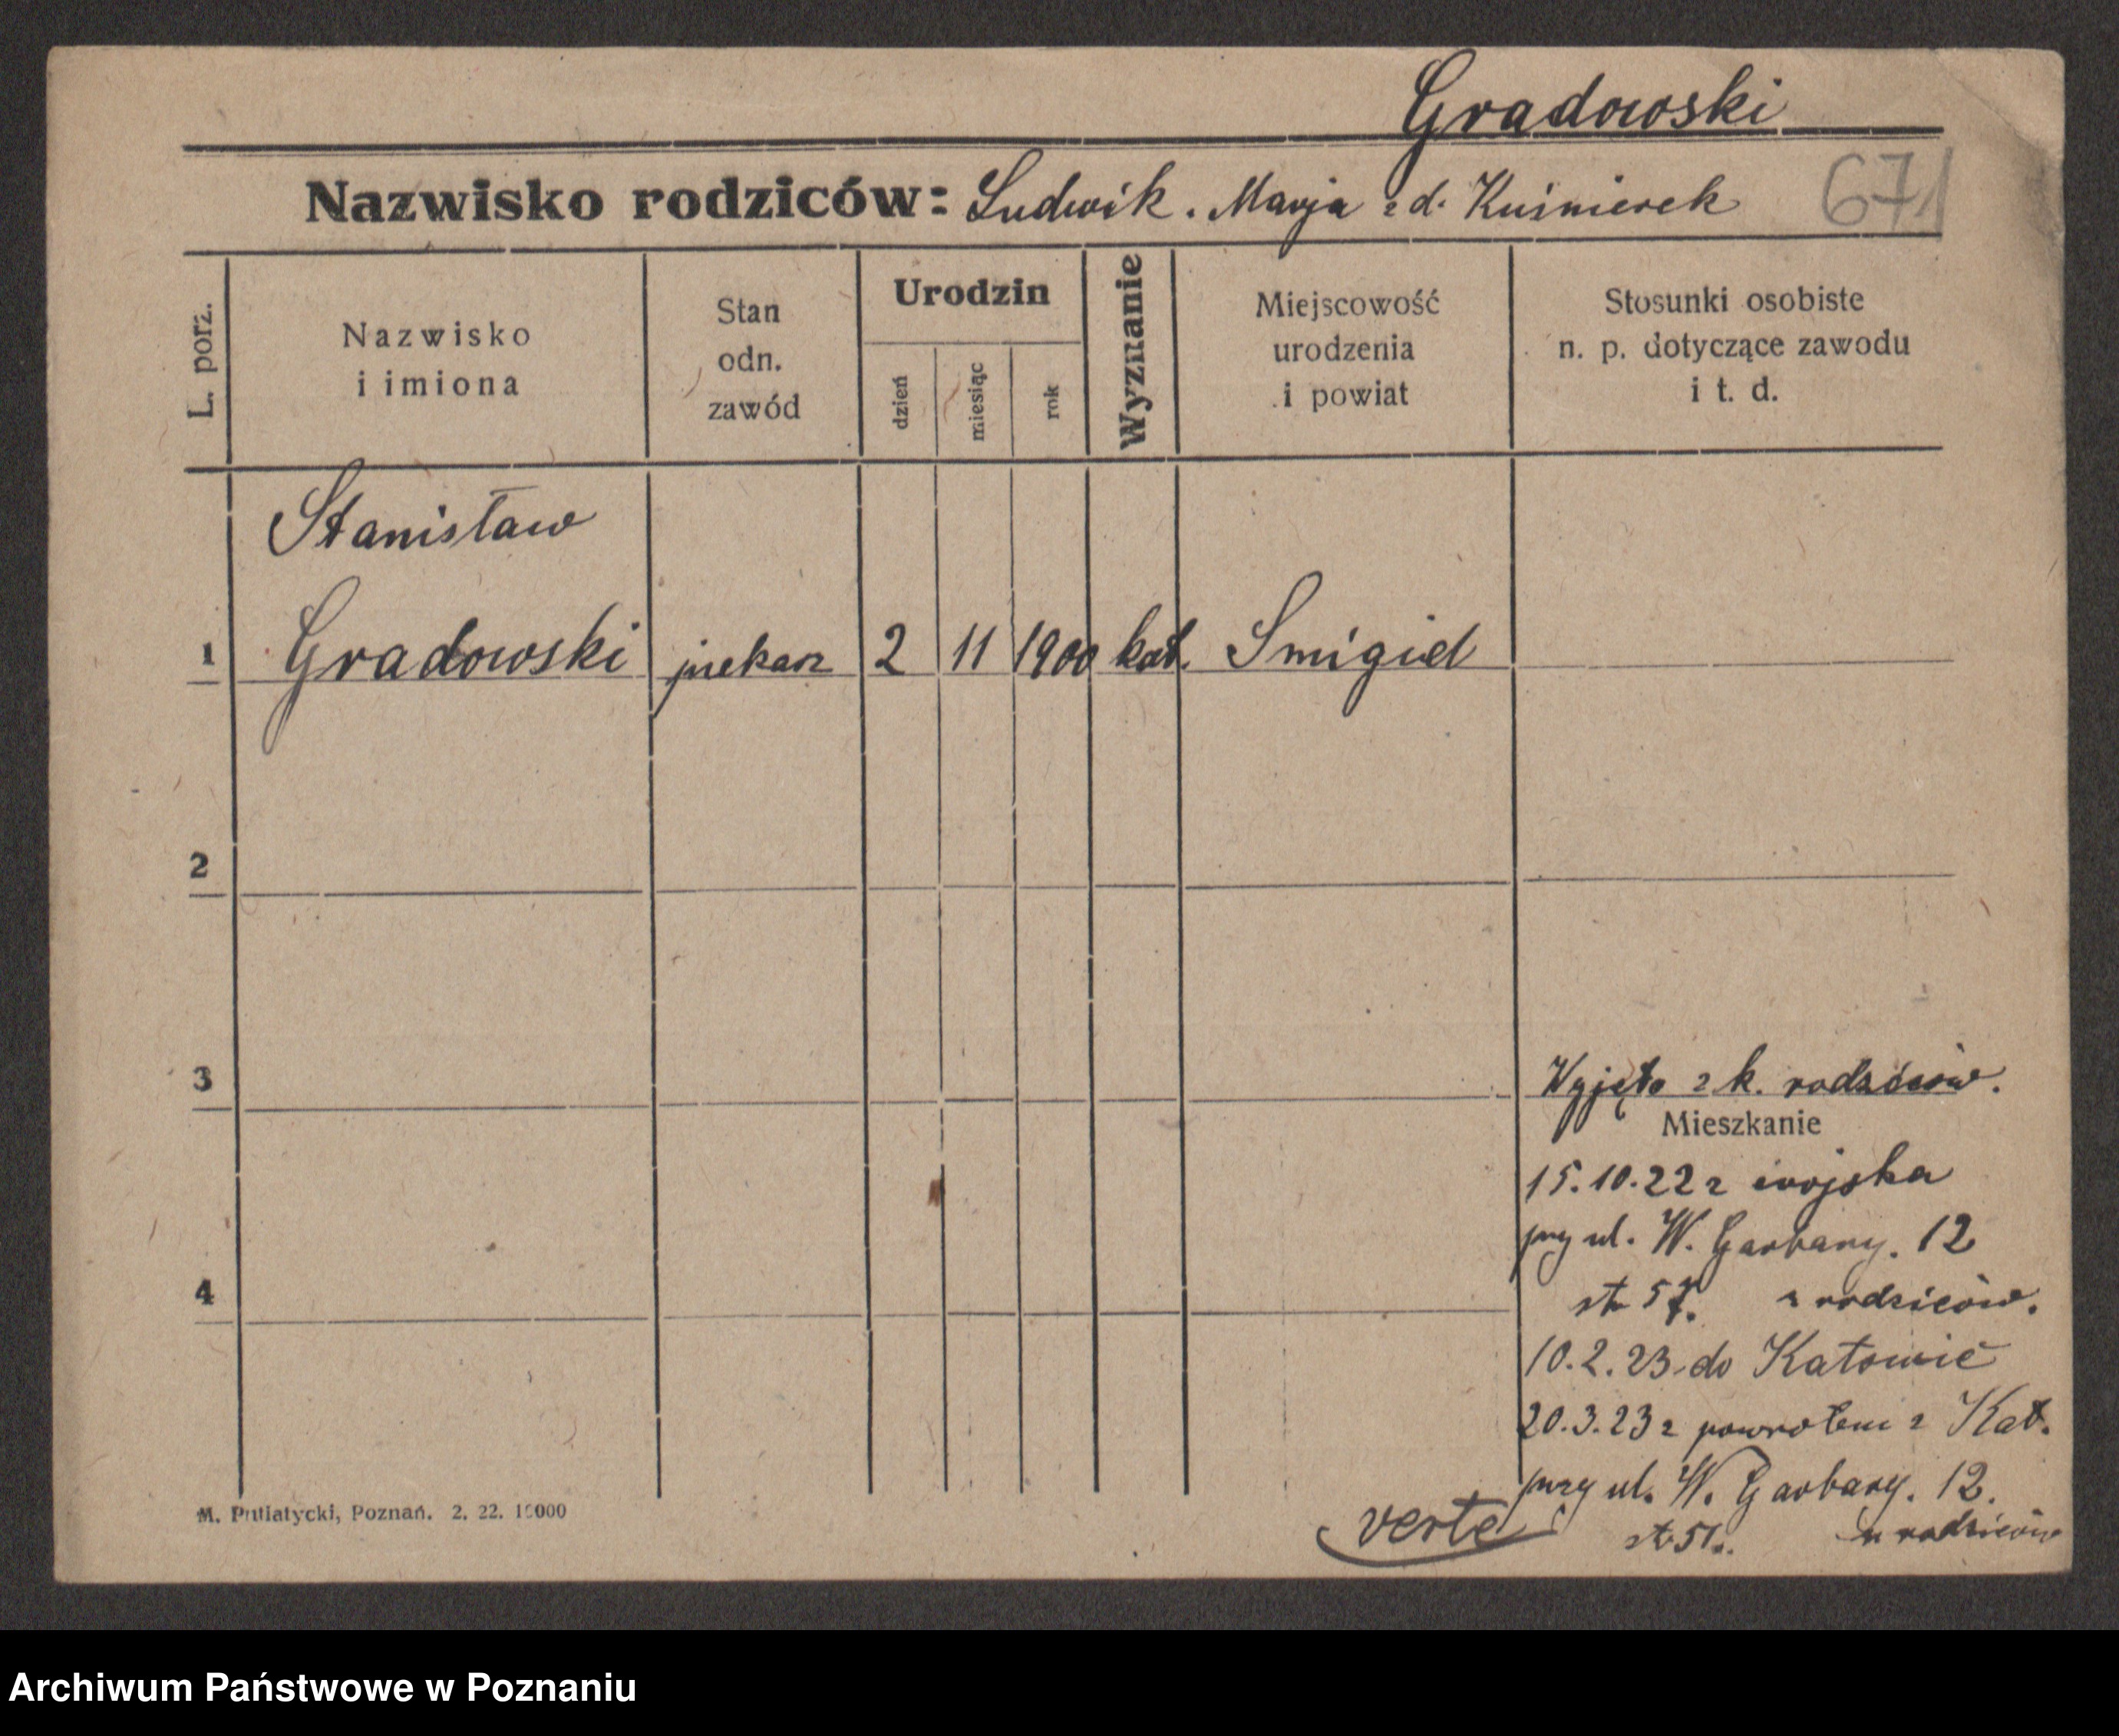 Gradowski
Nazwisko rodziców: Ludwik. Marja z d. Kuśnierek
671
L. porz.
Nazwisko
i imiona
Stan
odn.
zawód
Urodzin
dzień
miesiąc
rok
Wyznanie
Miejscowość
urodzenia
i powiat
Stosunki osobiste
n. p. dotyczące zawodu
i t. d.
Stanisław
1 Gradowski piekarz 2 11 1900 kat. Smigiel
2
3
Wyjęto z k. rodziców.
Mieszkanie
15.10.22 z wojska
przy ul. W. Garbary. 12
4
st 57. rodziców.
10.2.23 do Katowic
20.3.23 z powrotem z Kat.
przy ul. W. Garbary. 12.
verte
u rodziców
M. Putiatycki, Poznań. 2. 22. 10000
Archiwum Państwowe w Poznaniu